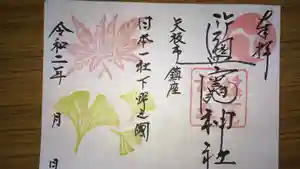 奉拝
竈神社
矢板市鎮座
日本一社下野之國
令和二年 月 日